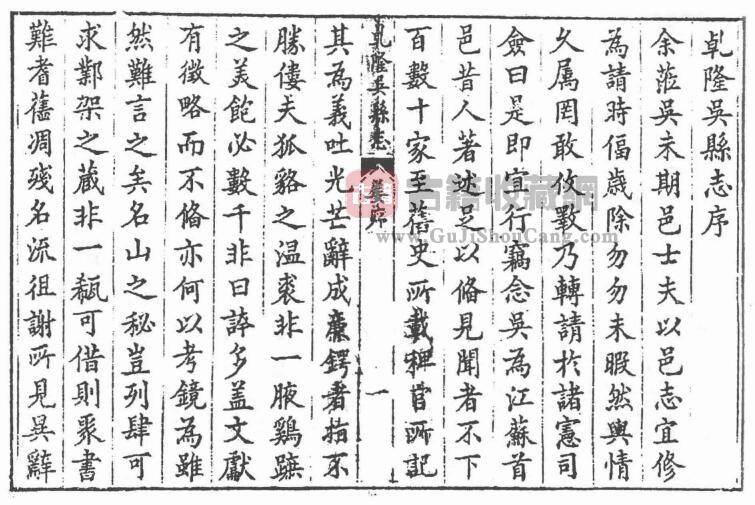 乹隆吳縣志序
余蒞吳未期邑士夫以邑志宜修
為請時偪歲除勿勿未暇然輿情
久属罔敢攸斁乃轉請於諸憲司
僉曰是即宜行竊念吳為江蘇首
邑昔人著述足以俻見聞者不下
百數十家至舊史所載稗官所記
乹隆吳縣志 序 一
其為義吐光芒辭成廉鍔者指不
勝僂夫狐貉之温裘非一腋鷄蹠
之美飽必數千非曰誇多盖文獻
有徵略而不俻亦何以考鏡為雖
然難言之矣名山之秘豈列肆可
求鄴架之藏非一瓻可借則聚書
難者舊凋殘名流徂謝所見異辭
古籍收藏網
www.GuJiShouCang.com